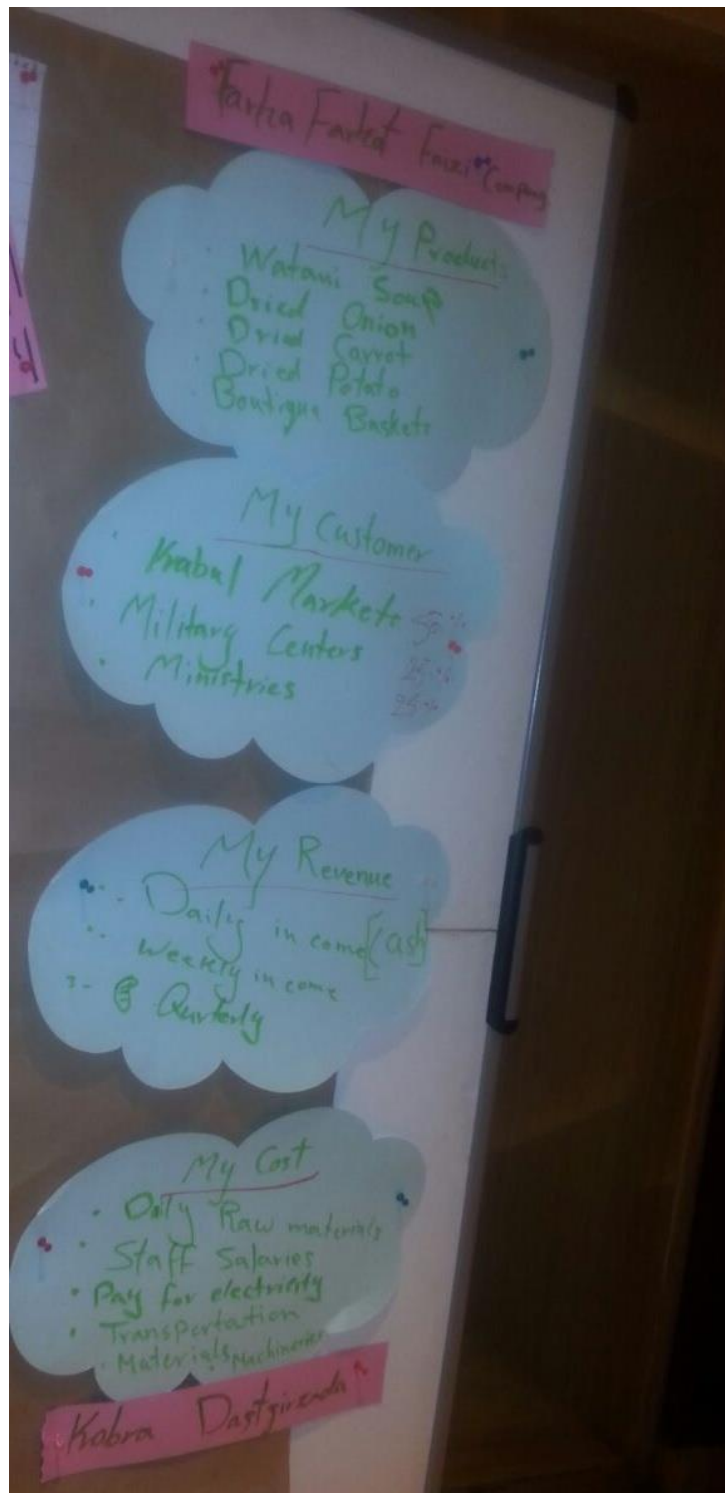 Farhat Fauzi Company
My Products
. Watani Soup
. Dried Onion
. Dried Carrot
. Dried Potato
. Boutique Baskets
My Customer
. Kabul Markets 50%
. Military Centers 25%
. Ministries 25%
My Revenue
- Daily income [Cash]
- Weekly income
3- Qurterly
My Cost
. Daily Raw materials
. Staff Salaries
. Pay for electricity
. Transportation
. Materials Machineries
Kobra Dastgirzada